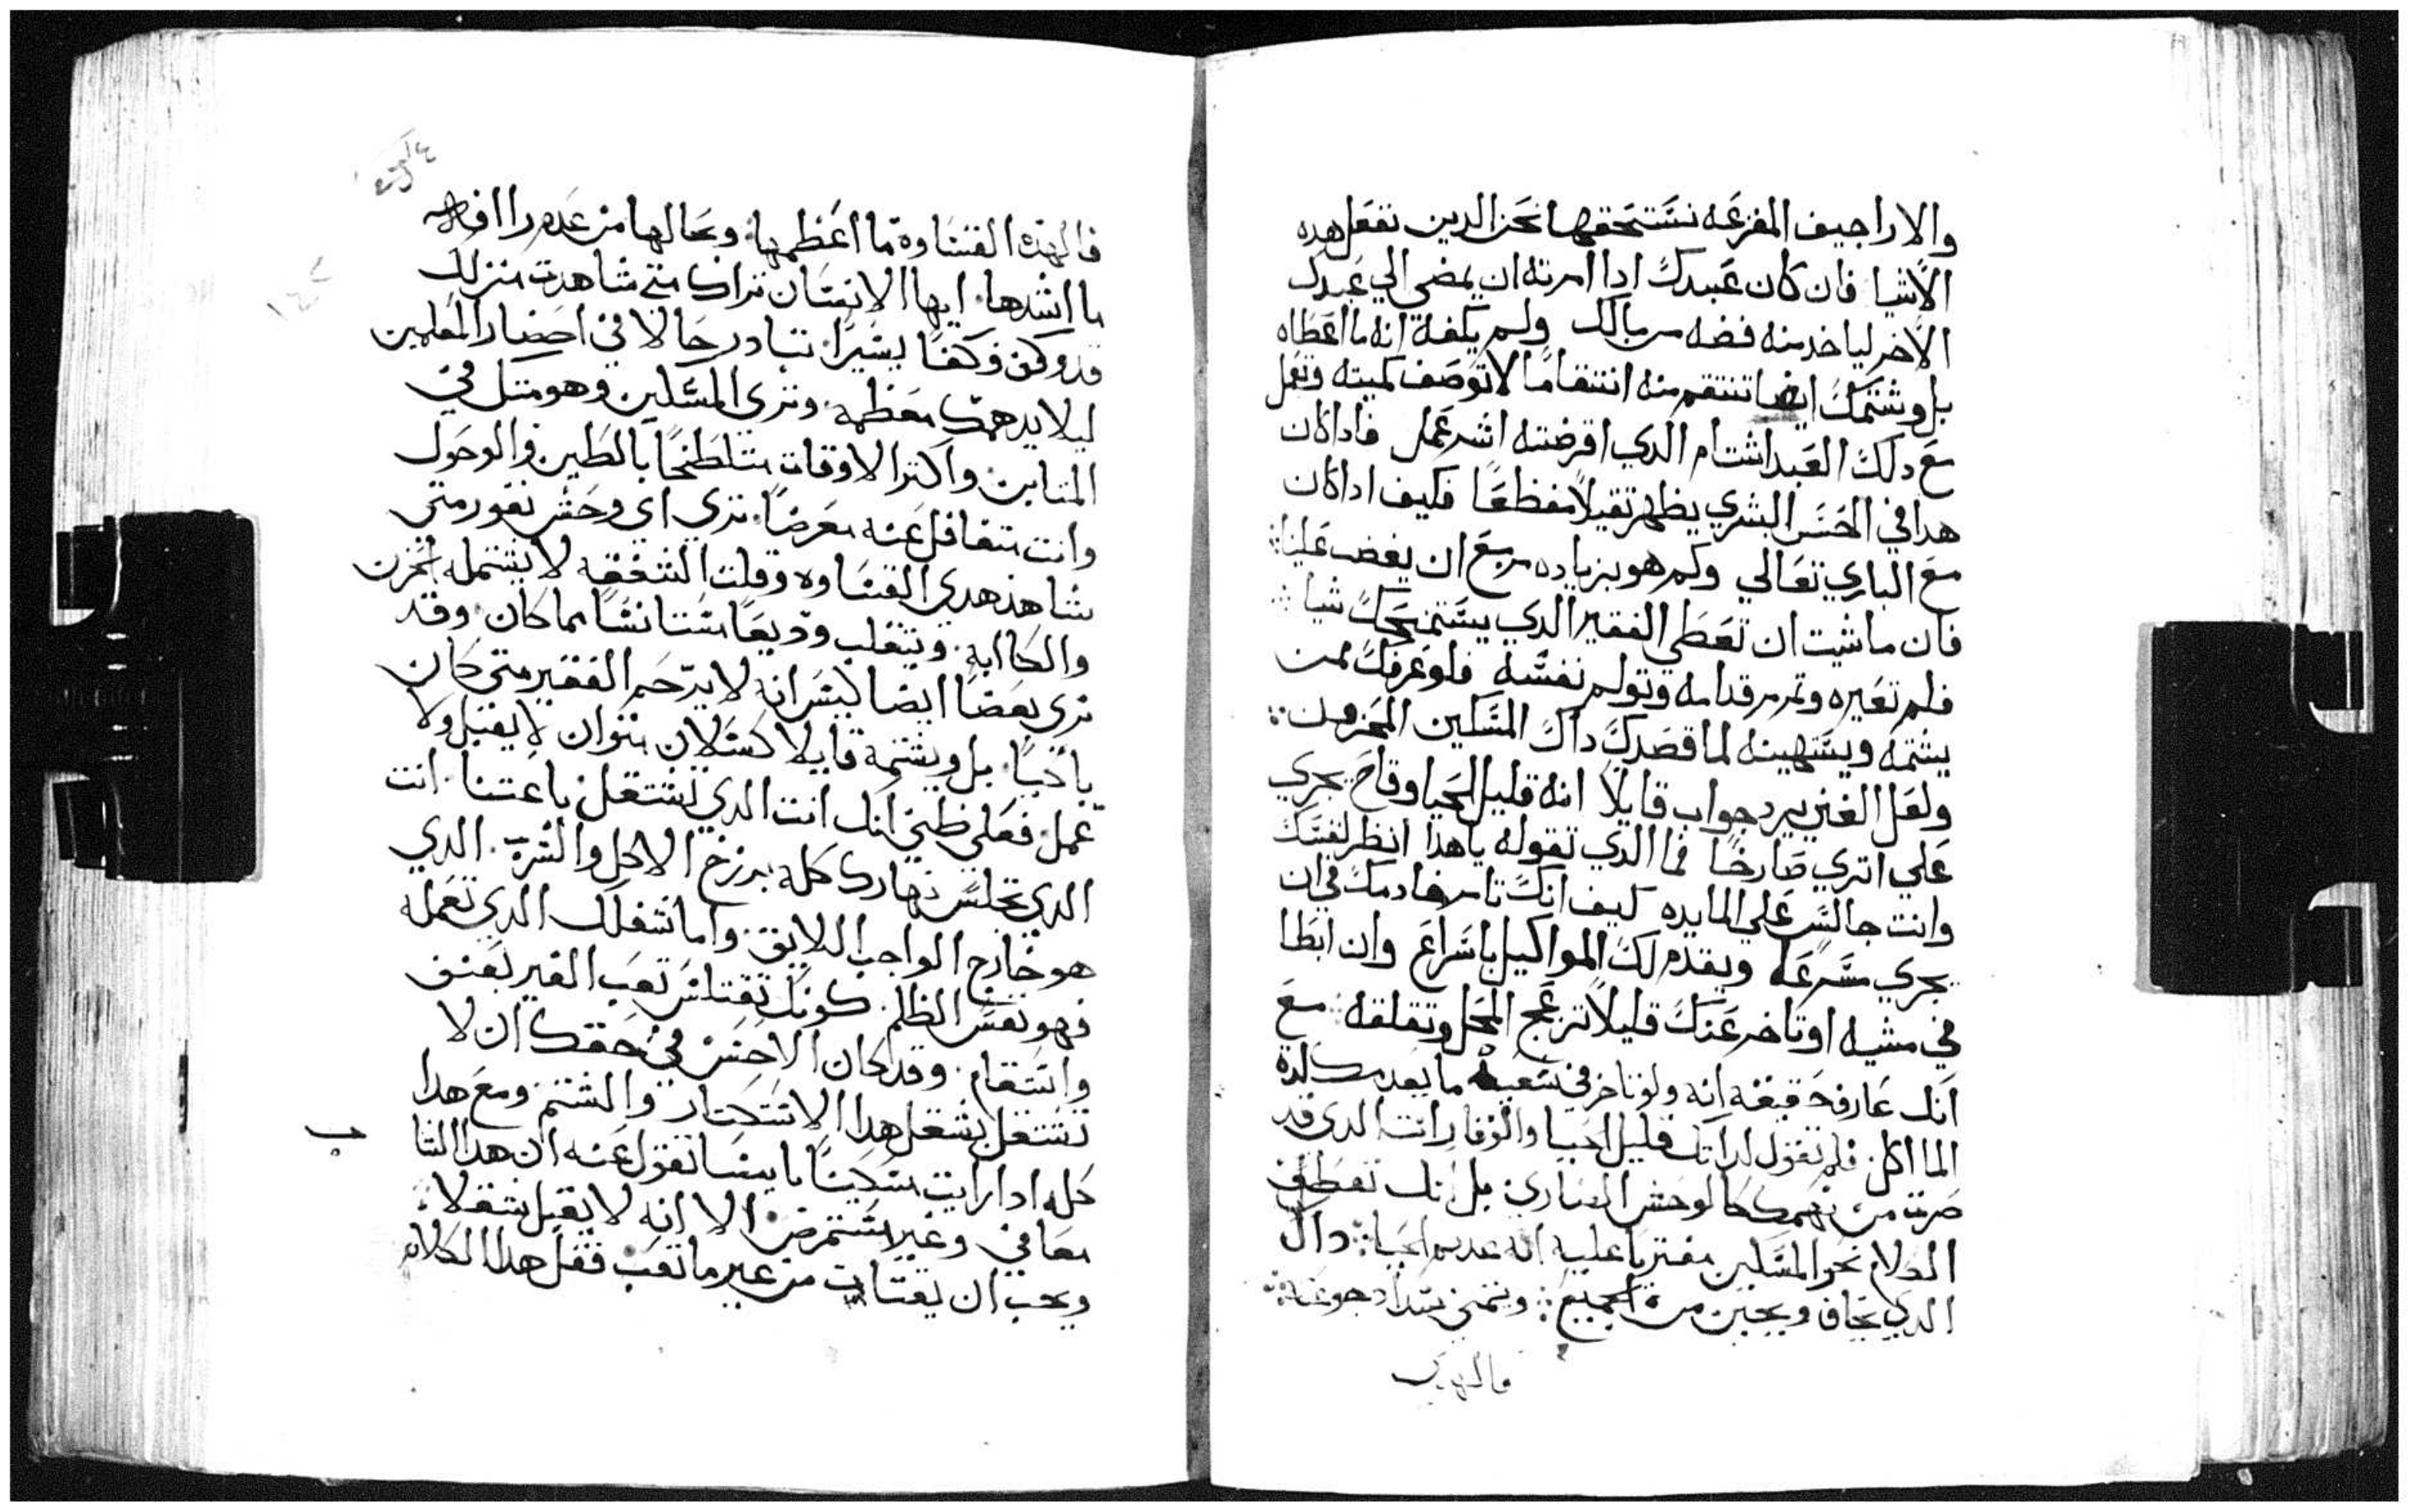 والاراجيف المفزعه نستحقها نحن الدين نفعل هده
الاشيا فان كان عبدك ادا امرته ان يمضي الي عبدك
الاخر لياخد منه فضه من مالك ولم يكفه انه ما اعطاه
بل وشتمك ايضا تنتقم منه انتقاما لا توصف كميته وتعمل
مع دلك العبد اشتام الدي اقرضته اشر عمل فادا كان
هدا في الحس البشري يظهر تقيلا مفظعا فكيف ادا كان
مع الباري تعالي وكم هو بزياده مربع ان يغضب علينا
فان ما شيت ان تعطي الفقير الدي يستمنحك شيا
فلم تعيره وتمرمر قدامه وتولم نفسه فلو عرفك ممن
يشتمه ويستهينه لما قصدك داك المسكين المحزون
ولعل الغني يرد جواب قايلا انه قليل الحيا وقاح يجري
علي اتري صارخا فما الدي تقوله يا هدا انظر لنفسك
وانت جالس علي المايده كيف انك تامر خادمك في ان
يجري مسرعا ويقدم لك المواكيل باسراع وان ابطا
في مشيه او تاخر عنك قليلا تزعج المحل وتقلقه مع
انك عارف حقيقة انه ولو تاخر في سعيه ما يعدمك لدة
الماكل فلم تقول لداتك قليل الحيا والوقار انت الدي قد
صرت من نهمك كالوحش الضاري بل انك تعطف
الكلام نحو المسكين مفتريا عليه انه عديم الحيا داك
الدي يخاف ويجبن من الجميع ويتمني سداد جوعته
فالهده
فالهده القساوة ما اعظمها وبحالها من عدم راافه
ما اشدها ايها الانسان تراك متي شاهدت منزلك
قد وكف وكفا يسيرا تبادر حالا في احضار المعلمين
ليلا يدهمك معظمه وتري المسكين وهو متكل في
المتابن واكتر الاوقات متلطخا بالطين والوحول
وانت تتغافل عنه معرضا تري اي وحش نفور متي
شاهد هدي القساوه وقلت الشفقه لا يشتمله الحزن
والكاابه وينقلب وديعا مستانسا مما كان وقد
نري بعضا ايضا ليس انه لا يرحم الفقير متي كان
باكيا بل ويشتمة قايلا كسلان متوان لا يقبل ولا
عمل فعلي ظني انك انت الدي تشتغل باعتنا انت
الدي تجلس نهارك كله ببرزخ الاكل والشرب الدي
هو خارج الواجب اللايق واما شغلك الدي تعمله
فهو نفس الظلم كونك تقتلس تعب الغير بعنف
وانتقام وقد كان الاحسن في حقك ان لا
تشتغل بشغل هدا الاستحتار والشتم ومع هدا
كله ادا رايت مسكينا بايسا تقول عنه ان هدا الشا
ب
معافي وغير مستمرض الا انه لا يقبل شغلا
ويحب ان يقتات من غير ما تعب فقل هدا الكلام